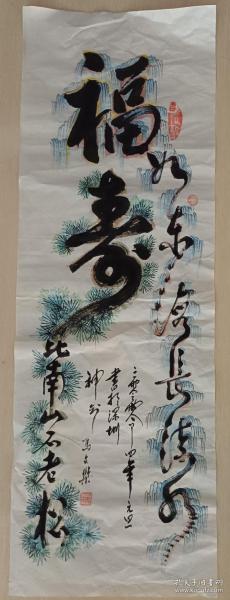 福如东海长流水
寿比南山不老松
二零零四年元旦
书于深圳
孔夫子旧书网